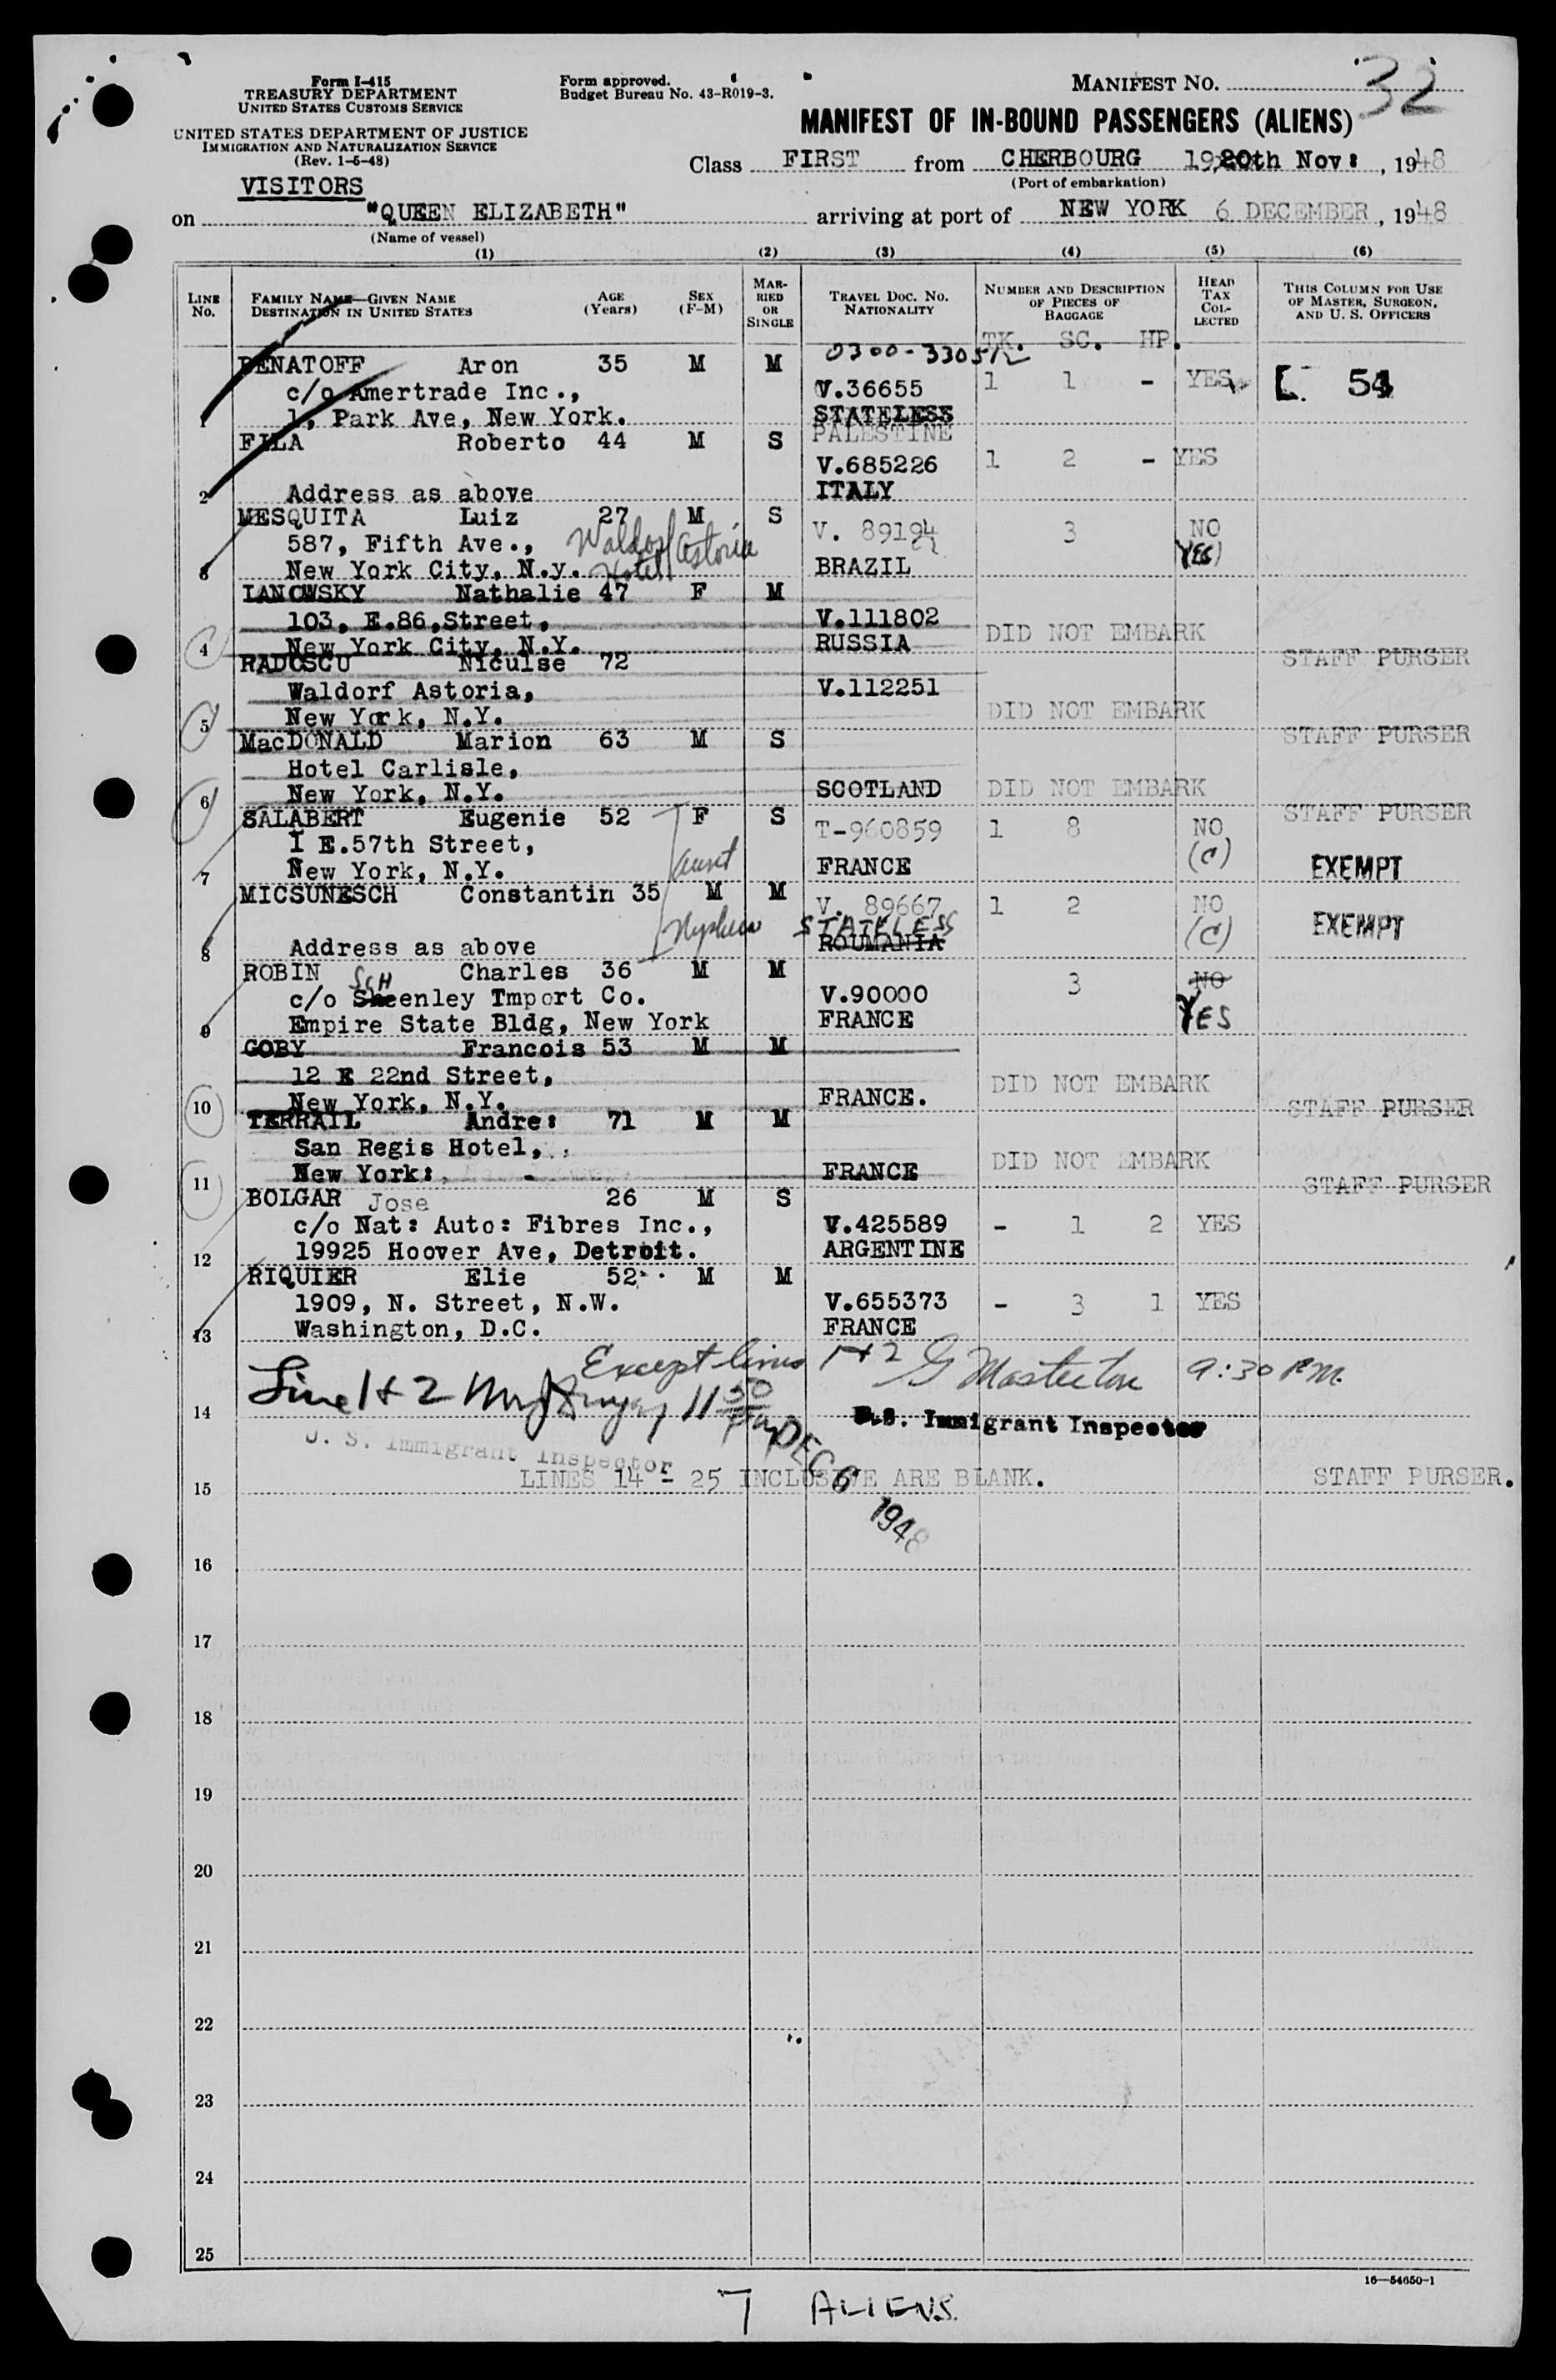 Form I-415
TREASURY DEPARTMENT
UNITED STATES CUSTOMS SERVICE
UNITED STATES DEPARTMENT OF JUSTICE
IMMIGRATION AND NATURALIZATION SERVICE
(Rev. 1-5-48)
Form approved.
Budget Bureau No. 43-R019-3.
MANIFEST NO. 32
MANIFEST OF IN-BOUND PASSENGERS (ALIENS)
Class FIRST from CHERBOURG 20th Nov: , 1948
(Port of embarkation)
VISITORS
on "QUEEN ELIZABETH" arriving at port of NEW YORK 6 DECEMBER, 1948
(Name of vessel)
(1) (2) (3) (4) (5) (6)
LINE No.
FAMILY NAME—GIVEN NAME
DESTINATION IN UNITED STATES
AGE (Years)
SEX (F-M)
MARRIED OR SINGLE
TRAVEL DOC. NO.
NATIONALITY
NUMBER AND DESCRIPTION OF PIECES OF BAGGAGE
HEAD TAX COLLECTED
THIS COLUMN FOR USE OF MASTER, SURGEON, AND U. S. OFFICERS
TK. SC. HP.
0300-33051
BENATOFF Aron 35 M M
c/o Amertrade Inc., V.36655 1 1 - YES [ 54
1 1, Park Ave, New York. STATELESS
PALESTINE
FILA Roberto 44 M S
V.685226 1 2 - YES
2 Address as above ITALY
MESQUITA Luiz 27 M S
587, Fifth Ave., Waldorf Astoria Hotel V. 89194 3 NO
YES
3 New York City, N.y. BRAZIL
IANOWSKY Nathalie 47 F M
103, E.86,Street, V.111802
4 New York City, N.Y. RUSSIA DID NOT EMBARK STAFF PURSER
RADOSCU Niculse 72
Waldorf Astoria, V.112251
5 New York, N.Y. DID NOT EMBARK STAFF PURSER
MacDONALD Marion 63 M S
Hotel Carlisle,
6 New York, N.Y. SCOTLAND DID NOT EMBARK STAFF PURSER
SALABERT Eugenie 52 F S
I E.57th Street, T-960859 1 8 NO
(C)
7 New York, N.Y. aunt FRANCE EXEMPT
MICSUNESCH Constantin 35 M M
V. 89667 1 2 NO
STATELESS (C) EXEMPT
8 Address as above ROUMANIA
ROBIN Charles 36 M M
c/o SCHeenley Tmport Co. V.90000 3 NO
YES
9 Empire State Bldg, New York FRANCE
GOBY Francois 53 M M
12 E 22nd Street,
10 New York, N.Y. FRANCE. DID NOT EMBARK STAFF PURSER
TERRAIL Andre: 71 M M
San Regis Hotel,
11 New York: FRANCE DID NOT EMBARK STAFF PURSER
BOLGAR Jose 26 M S
c/o Nat: Auto: Fibres Inc., V.425589 - 1 2 YES
12 19925 Hoover Ave, Detroit. ARGENTINE
RIQUIER Elie 52 M M
1909, N. Street, N.W. V.655373 - 3 1 YES
13 Washington, D.C. FRANCE
Except lines 1+2 G Masterton 9:30 P.M.
Line 1+2 11 50
14 U.S. Immigrant Inspector
U. S. Immigrant Inspector
DEC 6 1948
LINES 14 - 25 INCLUSIVE ARE BLANK. STAFF PURSER.
15
16
17
18
19
20
21
22
23
24
25
16—54650-1
7 ALIENS.